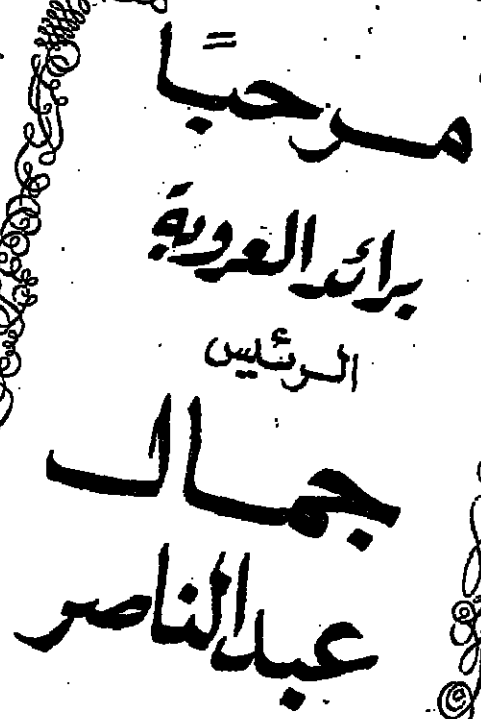 مرحباً
برائد العروبة
الرئيس
جمال
عبد الناصر